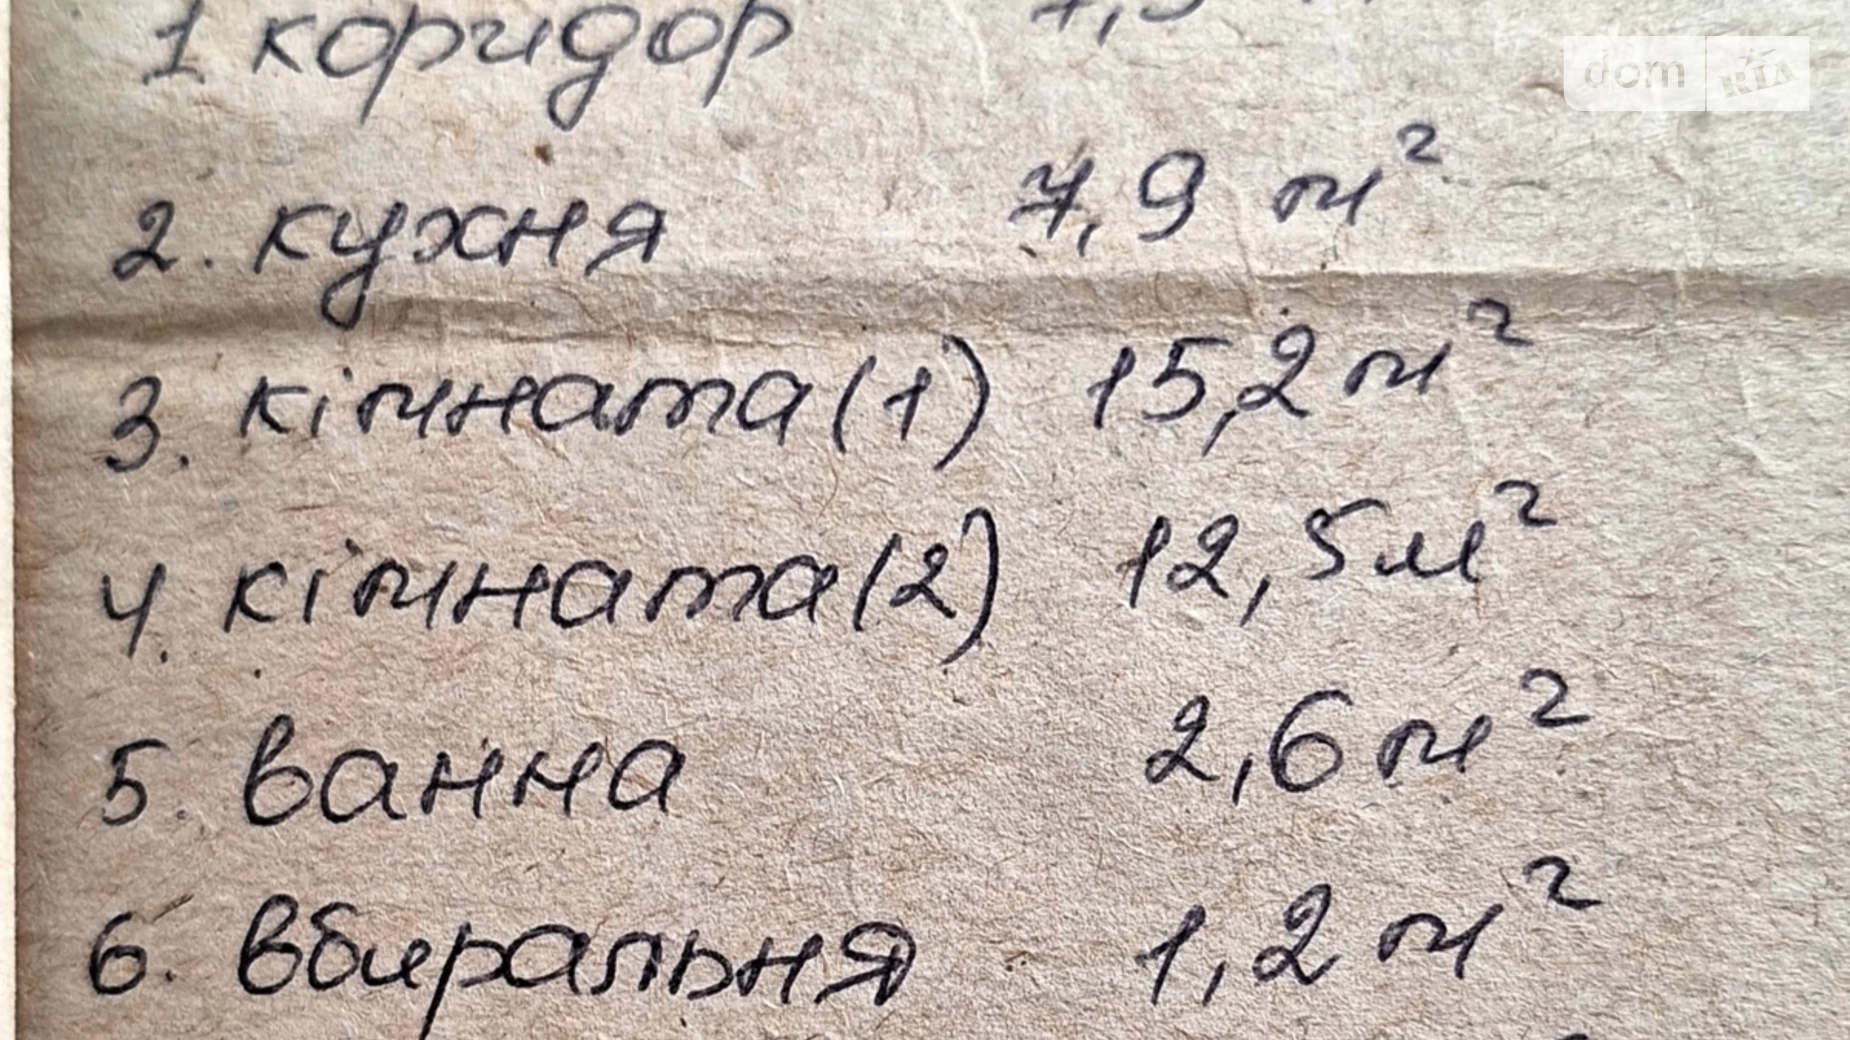 1 коридор
dom RIA
2. кухня 7,9 м²
3. кімната (1) 15,2 м²
4. кімната (2) 12,5 м²
5. ванна 2,6 м²
6. вбиральня 1,2 м²